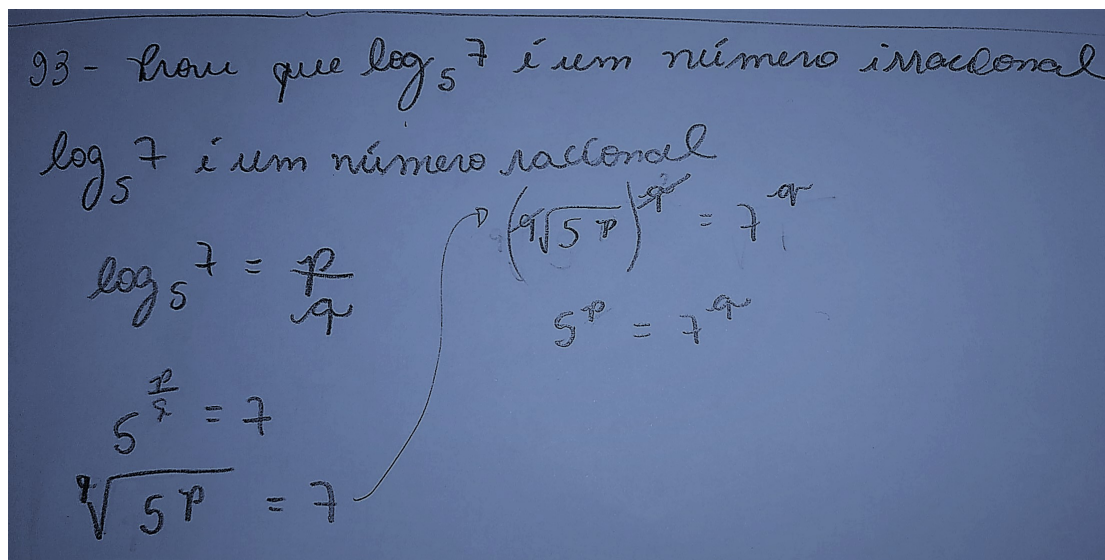 93 - Prove que log₅ 7 é um número irracional
log₅ 7 é um número racional
log₅ 7 = p/q
5^(p/q) = 7
q√(5^p) = 7
(q√(5^p))^q = 7^q
5^p = 7^q